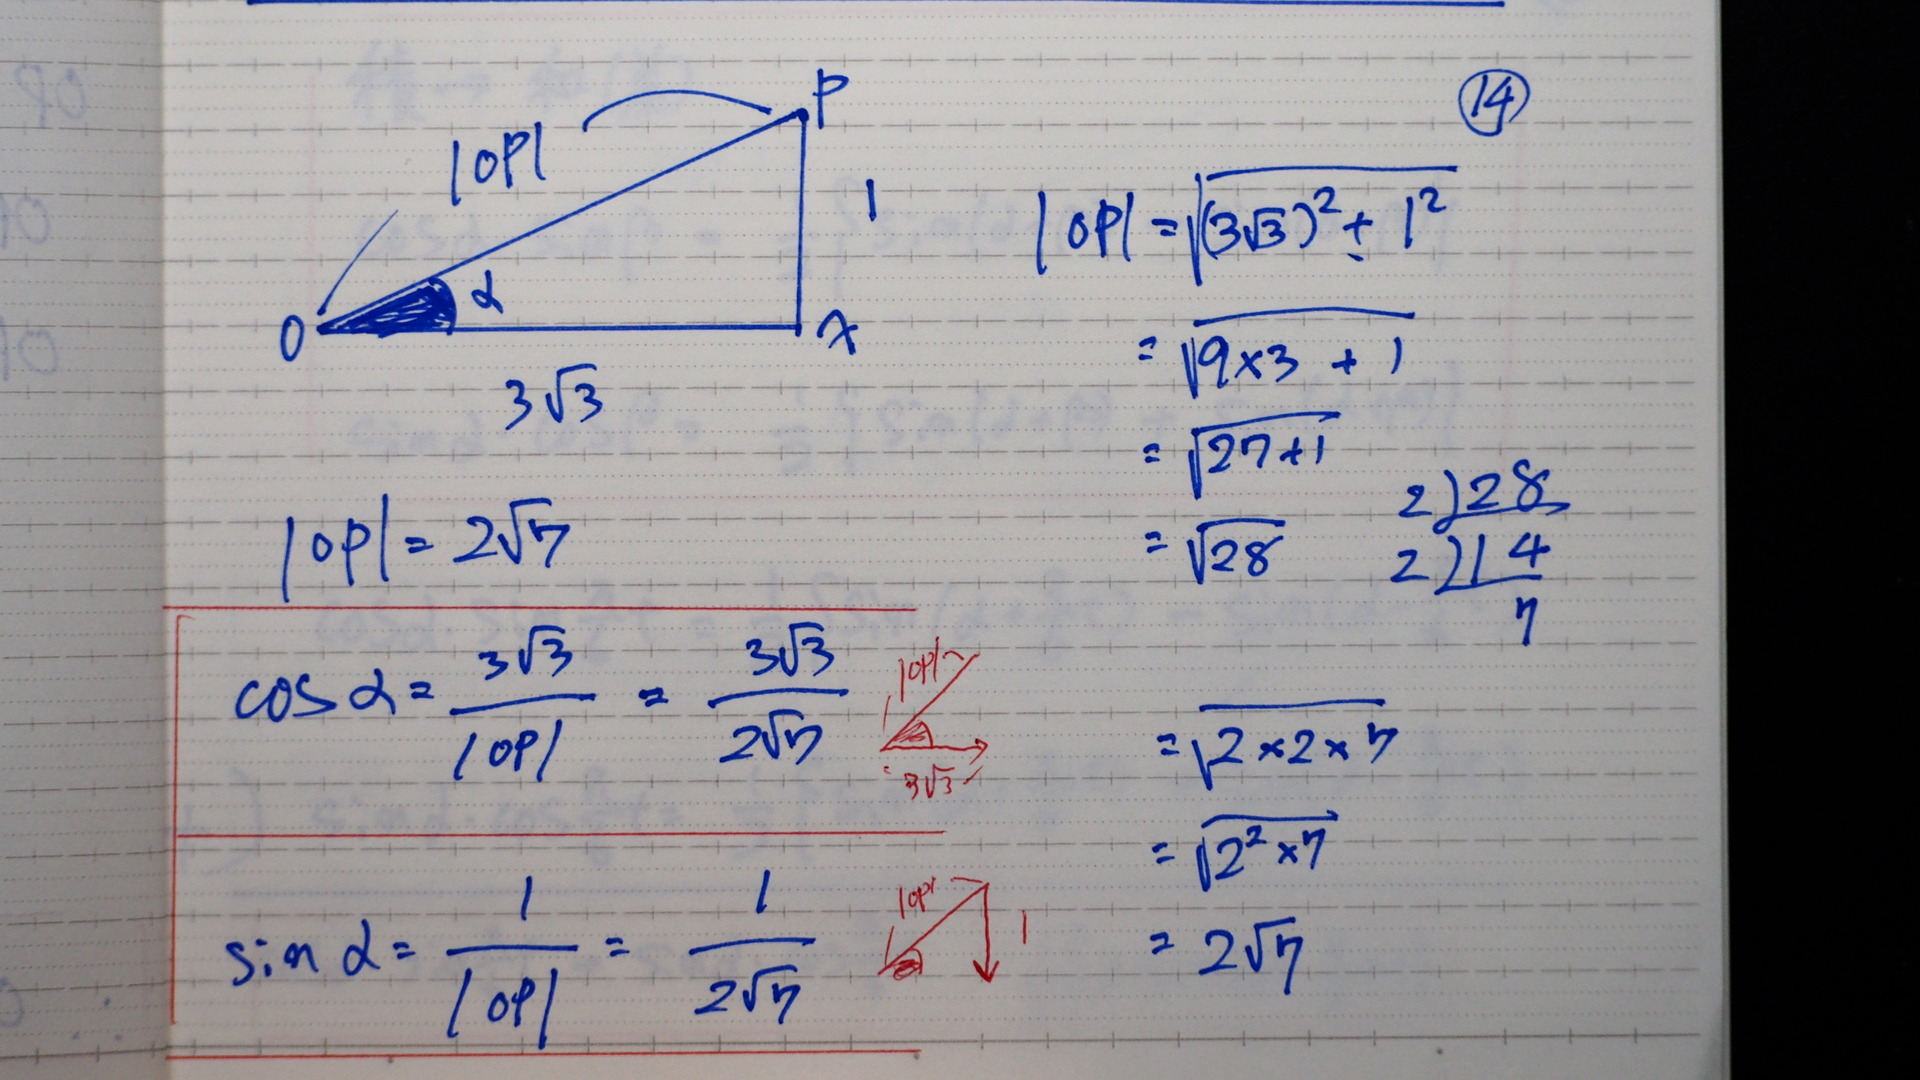 14
P
|OP|
1
α
O
x
3√3
|OP| = √(3√3)² + 1²
= √9×3 + 1
= √27+1
= √28
2)28
2)14
7
= √2×2×7
= √2²×7
= 2√7
|OP| = 2√7
cos α = 3√3/|OP| = 3√3/2√7
|OP|
3√3
sin α = 1/|OP| = 1/2√7
|OP|
1